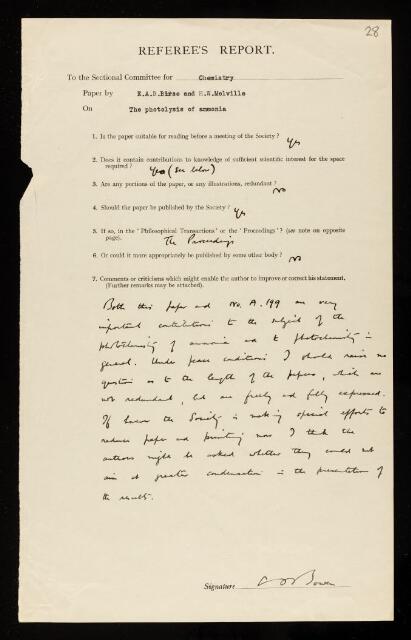 28
REFEREE'S REPORT.
To the Sectional Committee for Chemistry
Paper by E.A.B.Birse and H.W.Melville
On The photolysis of ammonia
1. Is the paper suitable for reading before a meeting of the Society? Yes
2. Does it contain contributions to knowledge of sufficient scientific interest for the space
required? Yes (see below)
3. Are any portions of the paper, or any illustrations, redundant? No
4. Should the paper be published by the Society? Yes
5. If so, in the 'Philosophical Transactions' or the 'Proceedings'? (see note on opposite
page). The Proceedings
6. Or could it more appropriately be published by some other body? No
7. Comments or criticisms which might enable the author to improve or correct his statement.
(Further remarks may be attached).
Both this paper and No. A. 199 are very
important contributions to the subject of the
photochemistry of ammonia and to photochemistry in
general. Under peace conditions I should raise no
question as to the length of the papers, which are
not redundant, but are freely and fully expressed.
If however the Society is making special efforts to
reduce paper and printing now I think the
authors might be asked whether they could not
aim at greater condensation in the presentation of
the results.
Signature Bowen